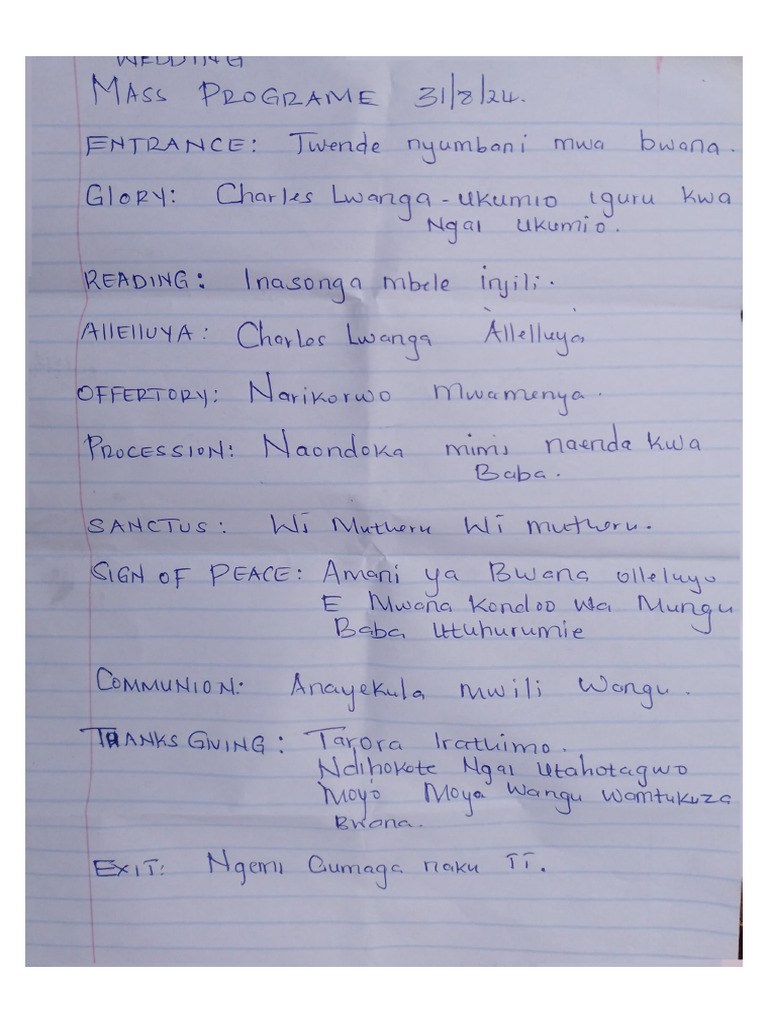 WEDDING
MASS PROGRAME 31/8/24.
ENTRANCE: Twende nyumbani mwa bwana.
GLORY: Charles Lwanga - UKUMIO IGURU KWA
NGAI UKUMIO.
READING: Inasonga mbele injili.
AllElluYA: Charles Lwanga Allelluya
OFFERTORY: Narikorwo Mwamenya.
PROCESSION: Naondoka mimi naenda kwa
Baba.
SANCTUS: Wi Mutheru Wi mutheru.
SIGN OF PEACE: Amani ya Bwana olleluya
E Mwana Kondoo wa Mungu
Baba Utuhurumie
COMMUNION: Anayekula mwili Wangu.
THANKS GIVING: Tarora Irathimo.
Ndihokete Ngai Utahotagwo
Moyo Moyo Wangu Wamtukuza
Bwana.
EXIT: Ngemi Cumaga naku II.